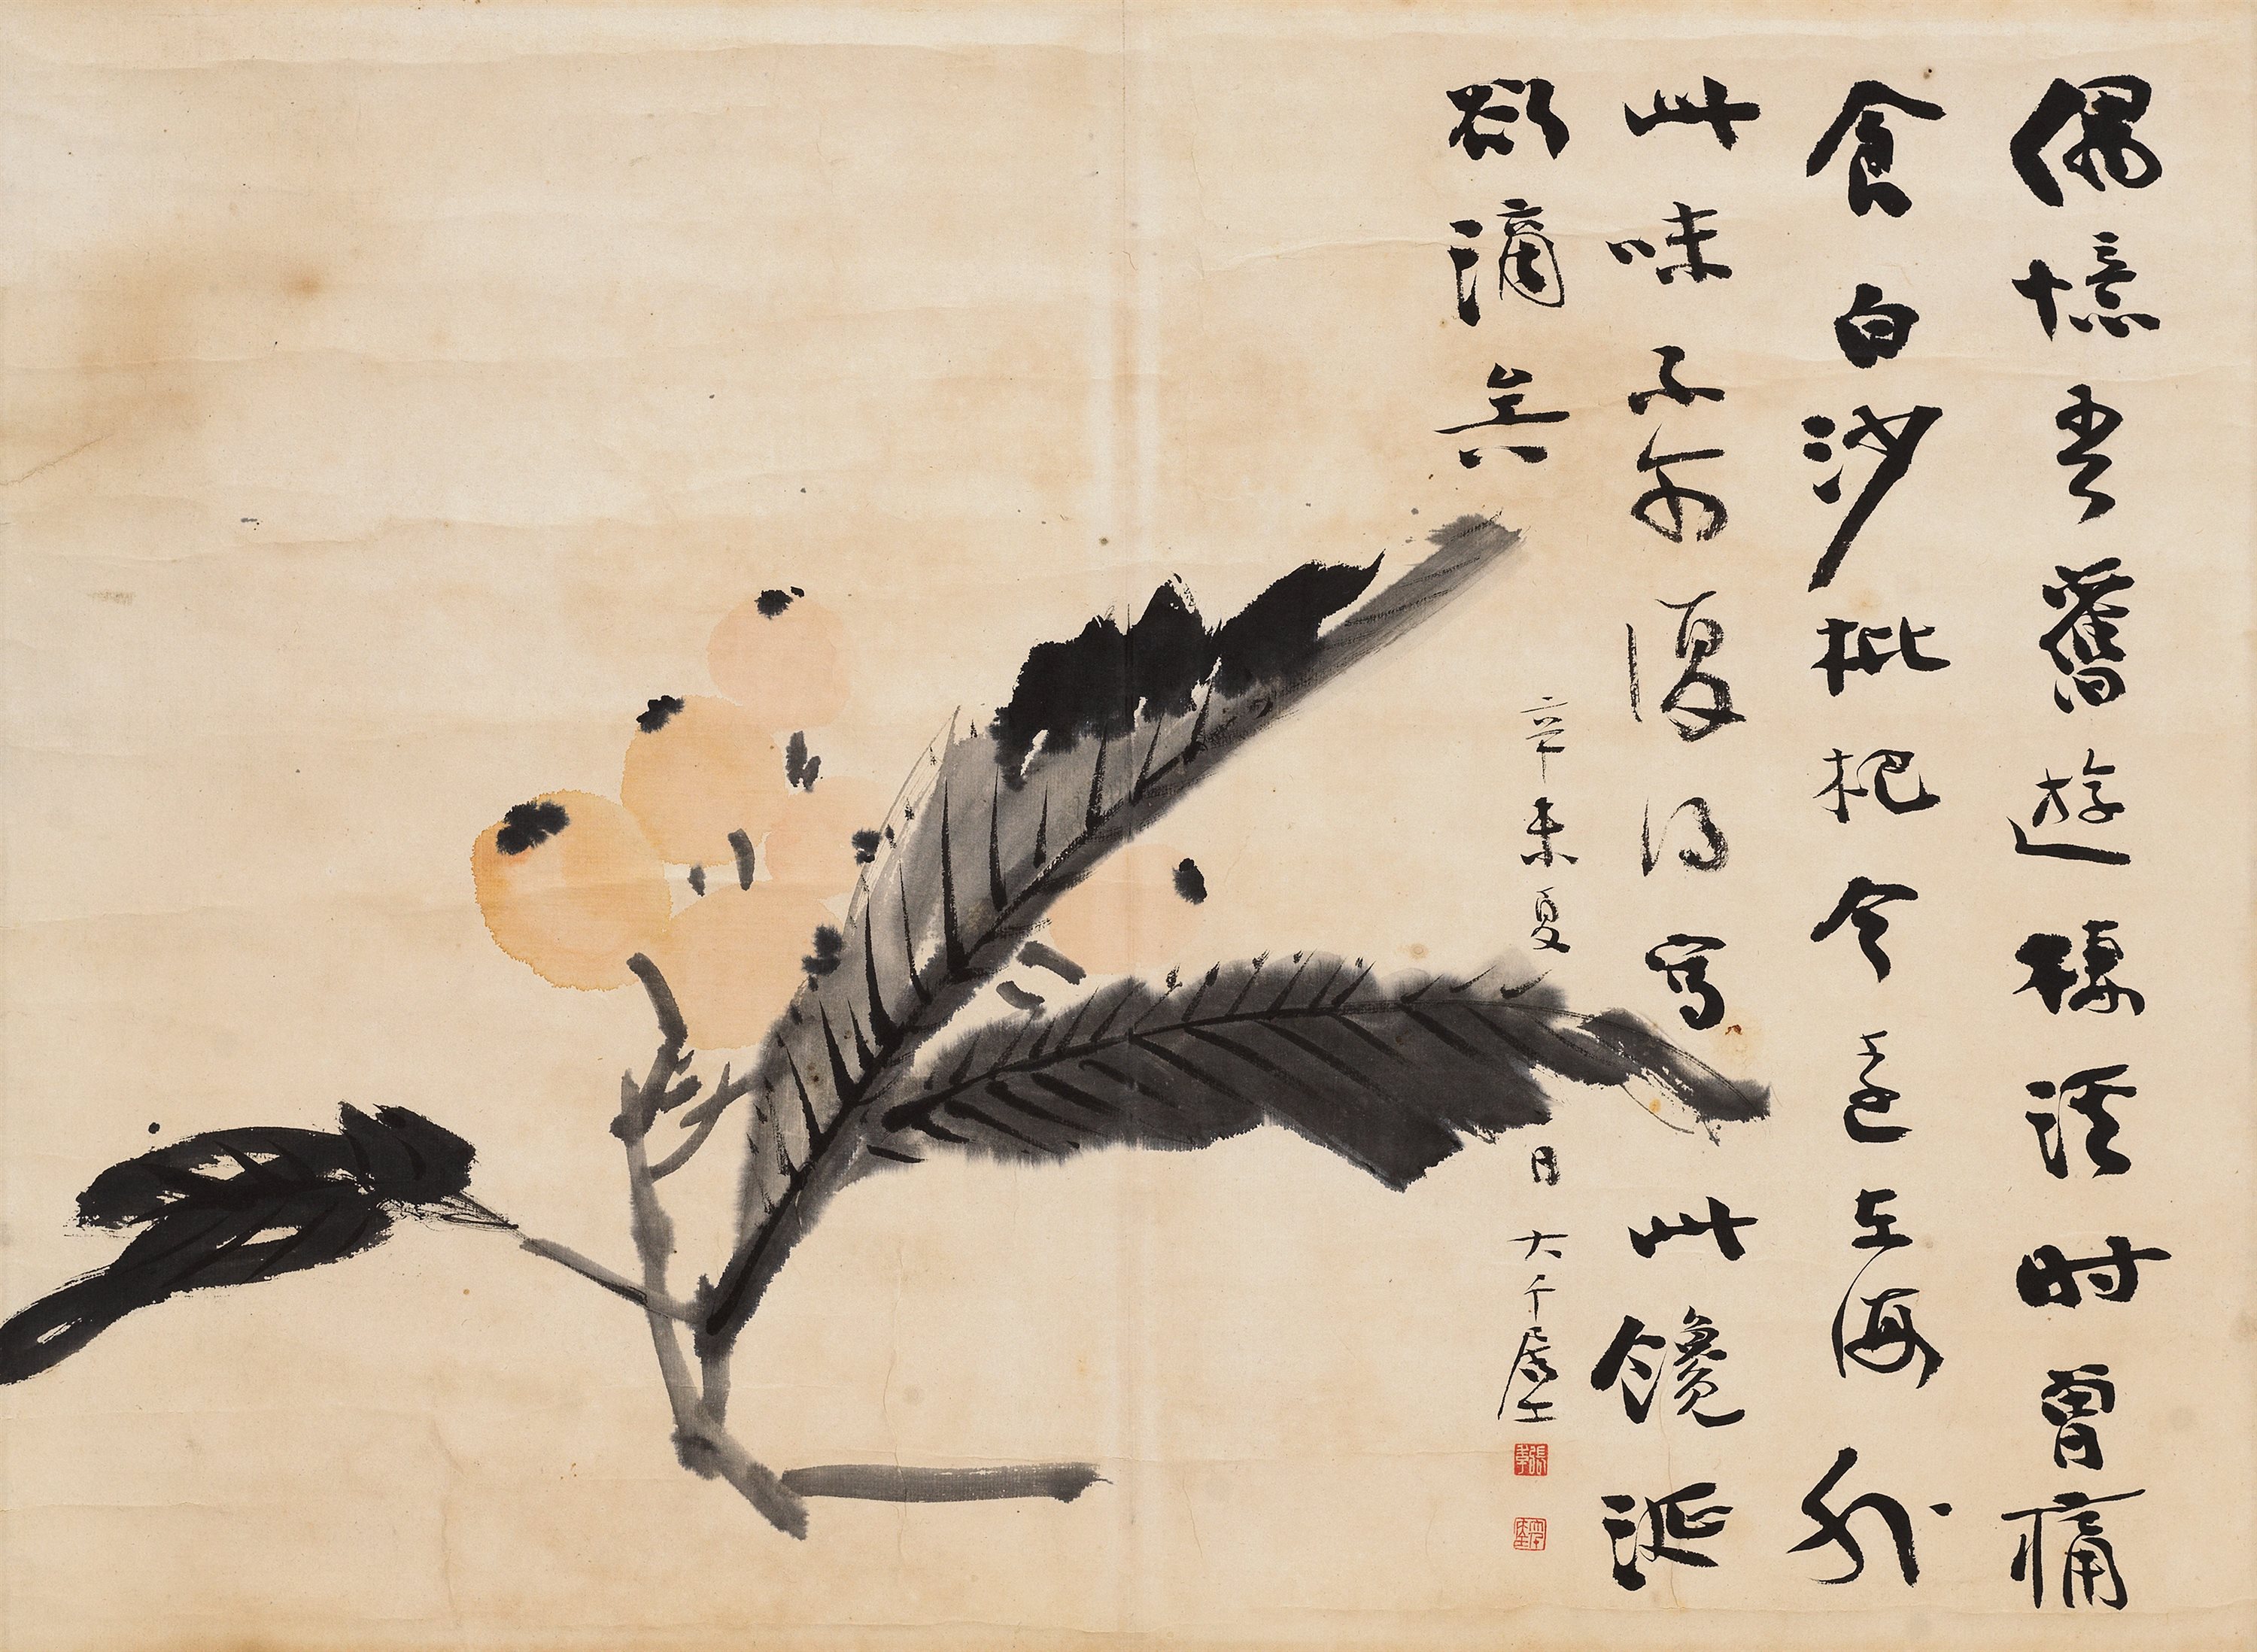 偶憶吾舊遊溪時曾痛
食白沙枇杷今遠在海外
此味不復得寫此饞涎
欲滴矣
辛未夏日大千居士
張爰